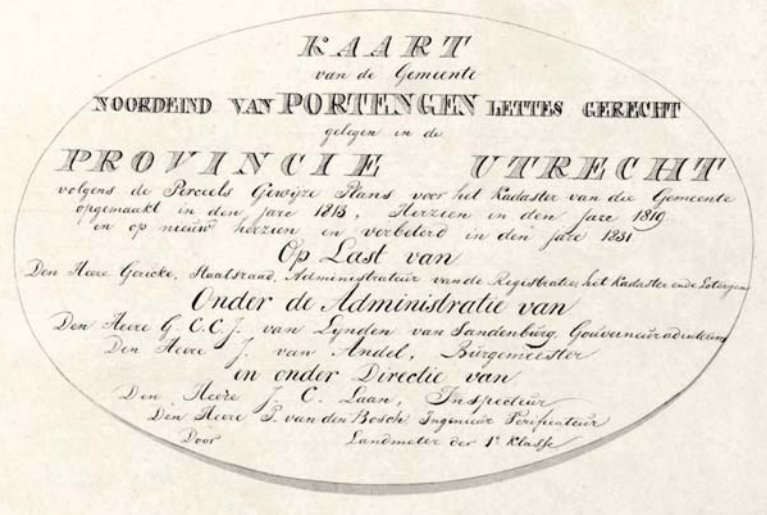 KAART
van de Gemeente
NOORDEIND VAN PORTENGEN LETTES GERECHT
gelegen in de
PROVINCIE UTRECHT
volgens de Perceels Gewijze Plans voor het Kadaster van die Gemeente
opgemaakt in den jare 1813, Herzien in den jare 1819
en op nieuw herzien en verbeterd in den jare 1831
Op Last van
Den Heere Gericke, Staatsraad, Administrateur van de Registratie, het Kadaster ende Loterijen
Onder de Administratie van
Den Heere G. C. C. J. van Lynden van Sandenburg, Gouverneur adinterim
Den Heere J. van Andel, Burgemeester
en onder Directie van
Den Heere J. C. Laan, Inspecteur
Den Heere P. van den Bosch Ingenieur Verificateur
Door Landmeter der 1e Klasse